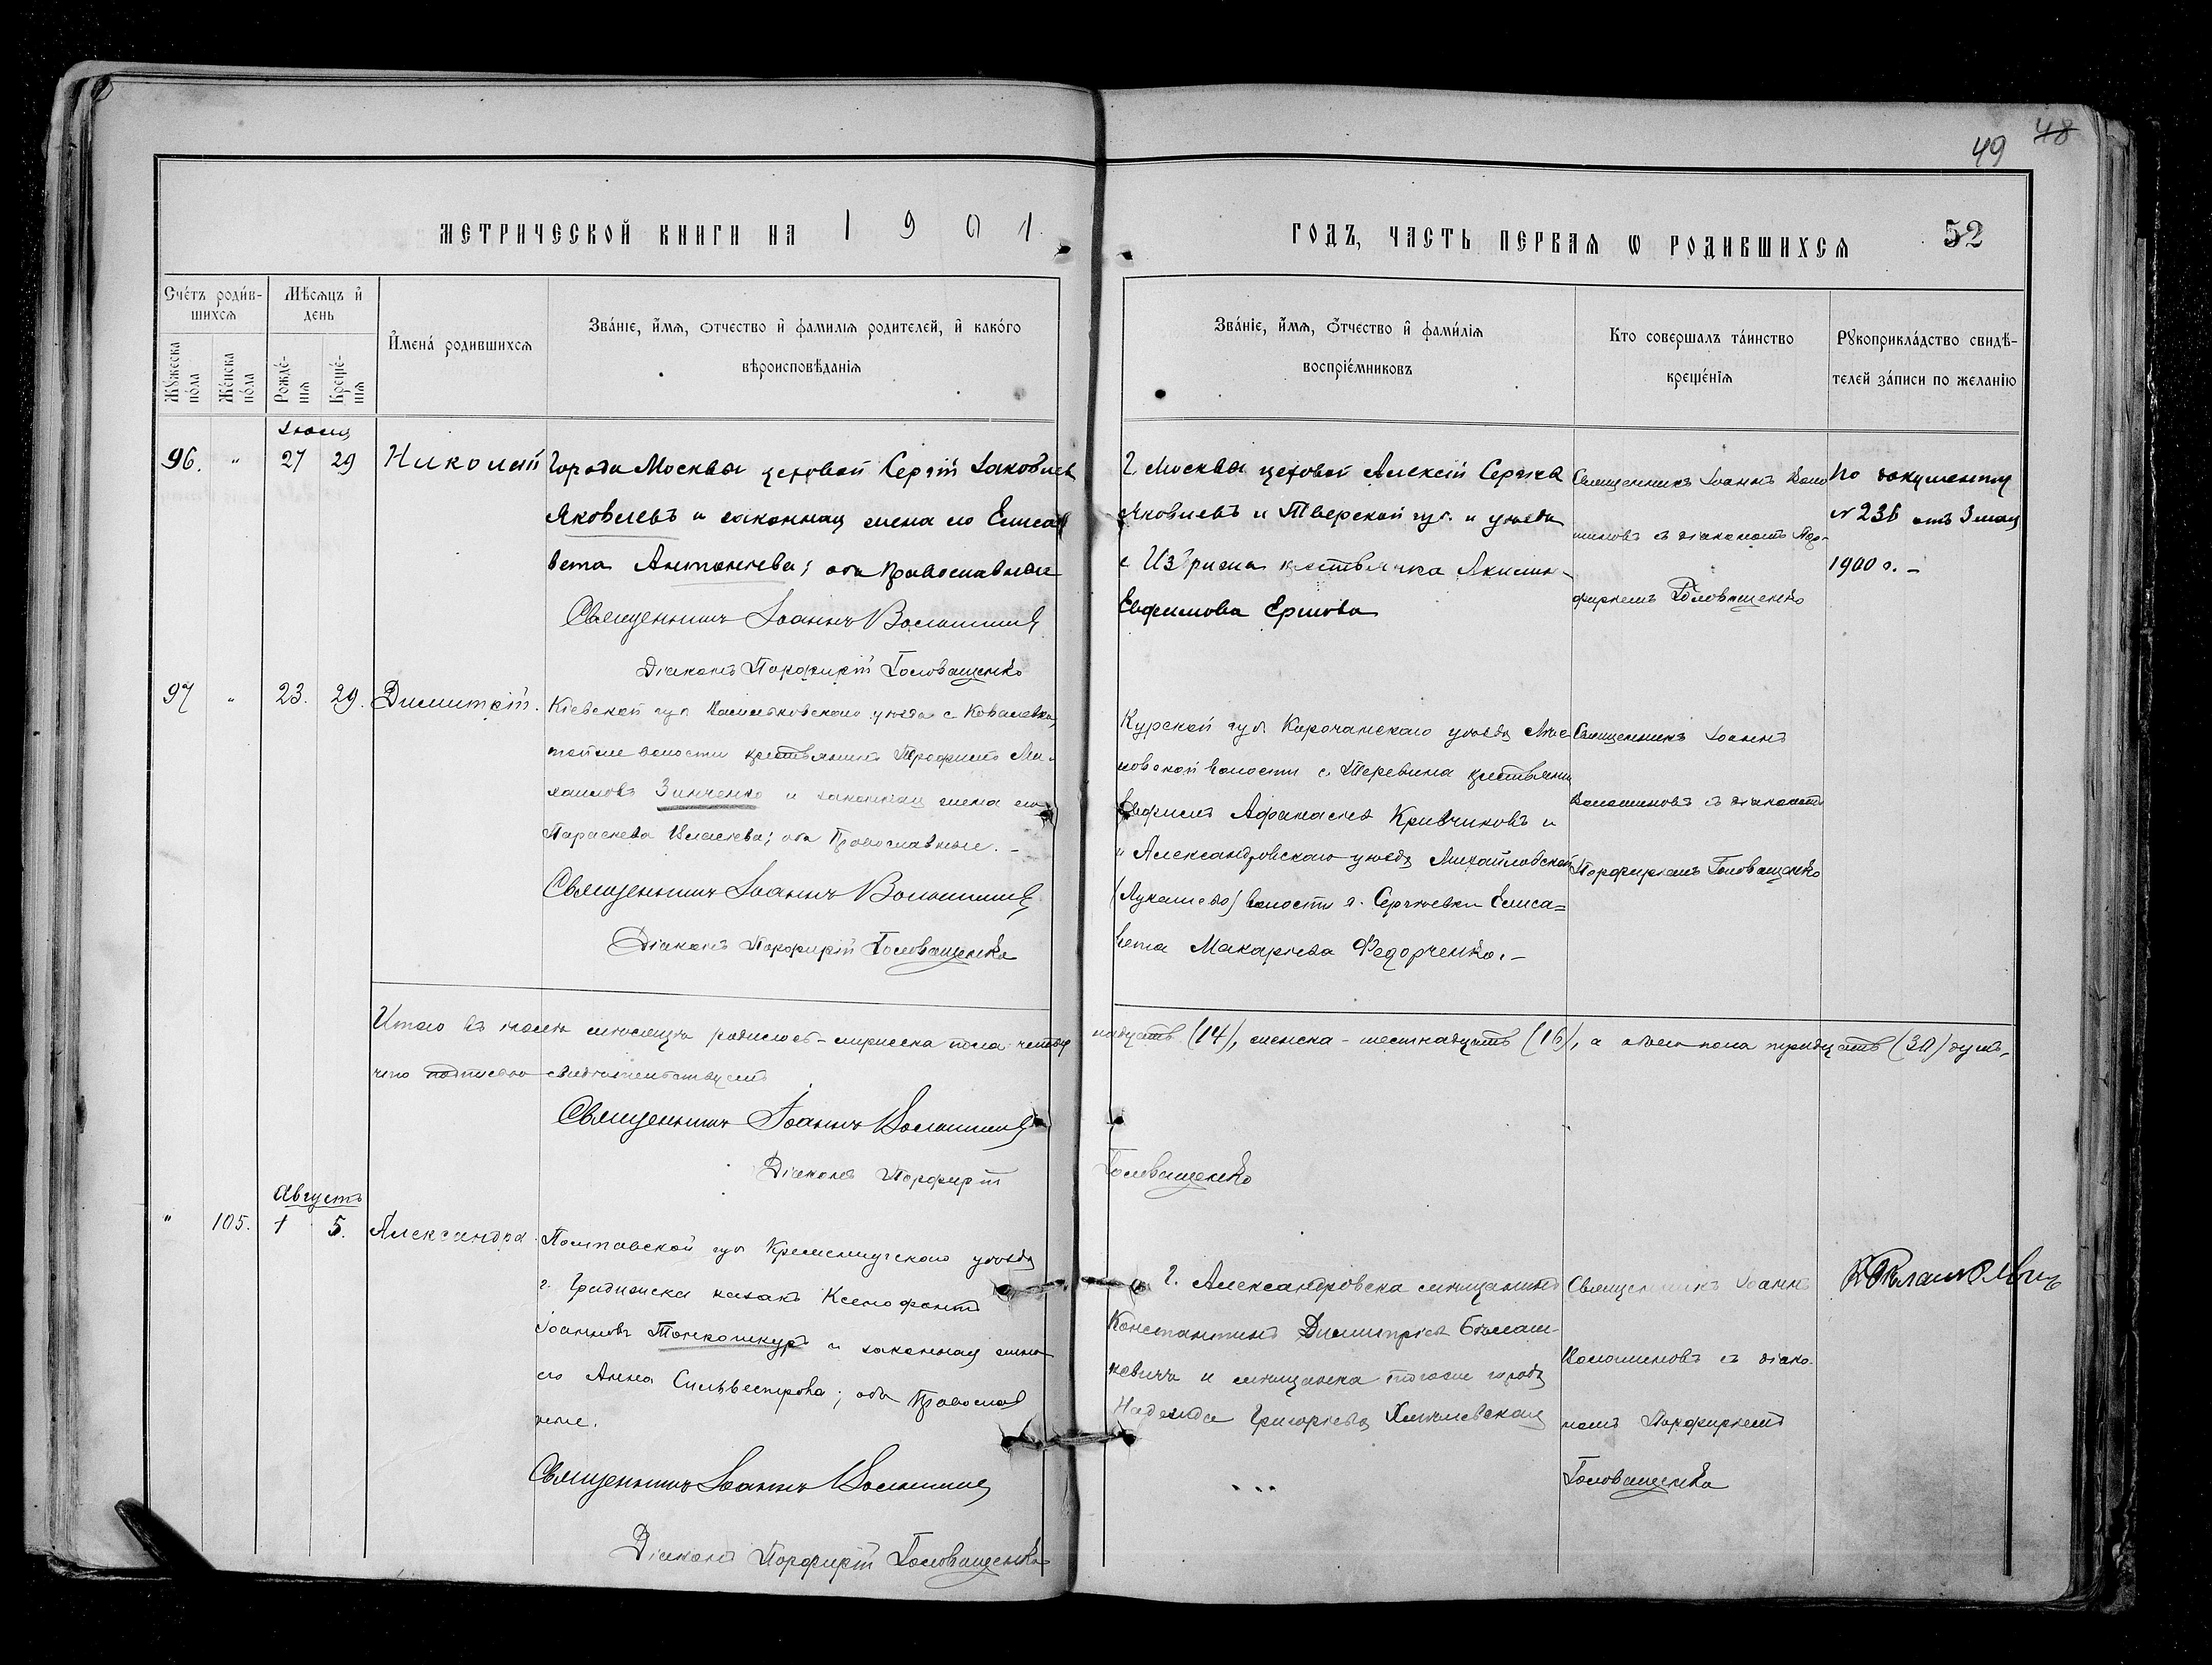 49 48
МЕТРИЧЕСКОЙ КНИГИ НА 1901
ГОДЪ, ЧАСТЬ ПЕРВАЯ Ѡ РОДИВШИХСЯ 52
Счетъ родив-
шихся
Мѣсяцъ и
день
Мужеска
пола
Женска
пола
Рожде-
нія
Креще-
нія
Имена родившихся
Званіе, имя, отчество и фамилія родителей, и какого
вѣроисповѣданія
Званіе, имя, отчество и фамилія
воспріемниковъ
Кто совершалъ таинство
крещенія
Рукоприкладство свидѣ-
телей записи по желанію
Іюля
96. " 27 29 Николай
Города Москвы цеховой Сергій Іаковлевъ
Яковлевъ и законная жена его Елиса
вета Антоніева; оба православные
Священникъ Іоаннъ Волошиновъ
Діаконъ Порфирій Головащенко
Г. Москвы цеховой Алексій Сергіевъ
Яковлевъ и Тверской губ. и уѣзда
с. крестьянка
Евфимова Ершова
Священникъ Іоаннъ Воло
шиновъ съ діакономъ Пор-
фиріемъ Головащенко
По документу
№ 236 отъ 3 мая
1900 г. –
97 " 23. 29. Димитрій.
Кіевской губ. уѣзда с. Ковалевки,
тойже волости крестьянинъ Трофимъ Ми-
хаиловъ Зинченко и законная жена его
Параскева Иліева; оба Православные. –
Священникъ Іоаннъ Волошиновъ
Діаконъ Порфирій Головащенко
Курской губ. Корочанскаго уѣзда
волости с. Теревина крестьянинъ
Евфимъ Афанасіевъ Кривчиковъ и
и Александровскаго уѣзда Михайловской
(Лукашево) волости д. Сергѣевки Елиса=
вета Макаріева Федорченко. –
Священникъ Іоаннъ
Волошиновъ съ діакономъ
Порфиріемъ Головащенко
Итого въ іюлѣ мѣсяцѣ родилось – мужеска пола четыр
надцать (14), женска – шестнадцать (16), а обоего пола тридцать (30) душъ,
чего подписью свидѣтельствуемъ
Священникъ Іоаннъ Волошиновъ
Діаконъ Порфирій
Головащенко
Августъ
" 105. 1 5. Александра.
Полтавской губ. Кременчугскаго уѣзда
г. Градижска казакъ Ксенофонтъ
Іоанновъ Тонкошкуръ и законная жена
его Анна Сильвестрова; оба Православ
ные.
Священникъ Іоаннъ Волошиновъ
Діаконъ Порфирій Головащенко
Г. Александровска мѣщанинъ
Константинъ Димитріевъ
и мѣщанка тогоже города
Надежда Григоріева Хмѣлевская
Священникъ Іоаннъ
Волошиновъ съ діако-
номъ Порфиріемъ
Головащенко